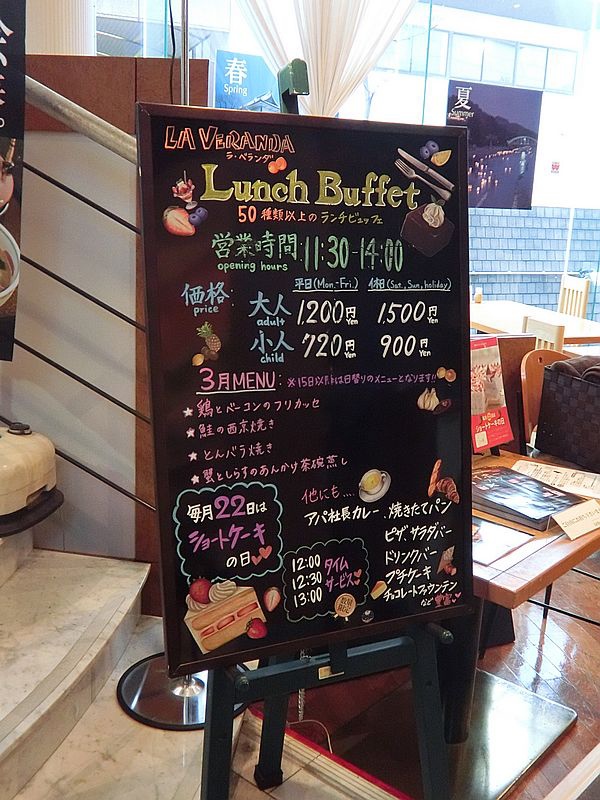 春
Spring
夏
Summer
LA VERANDA
ラ・ベランダ
Lunch Buffet
50種類以上のランチビュッフェ
営業時間 11:30-14:00
opening hours
平日(Mon.-Fri.) 休日(Sat., Sun, holiday)
価格 大人 1,200円 1,500円
price adult Yen Yen
小人 720円 900円
child Yen Yen
3月MENU: ※15日以降は日替りのメニューとなります!!
★鶏とベーコンのフリカッセ
★鮭の西京焼き
★とんバラ焼き
★蟹としらすのあんかけ茶碗蒸し
毎月22日は
ショートケーキ
の日
他にも....
アパ社長カレー、焼きたてパン
ピザ、サラダバー
ドリンクバー
プチケーキ
チョコレートファウンテン
など
12:00
12:30
13:00
タイム
サービス
数量
限定
ショートケーキの日